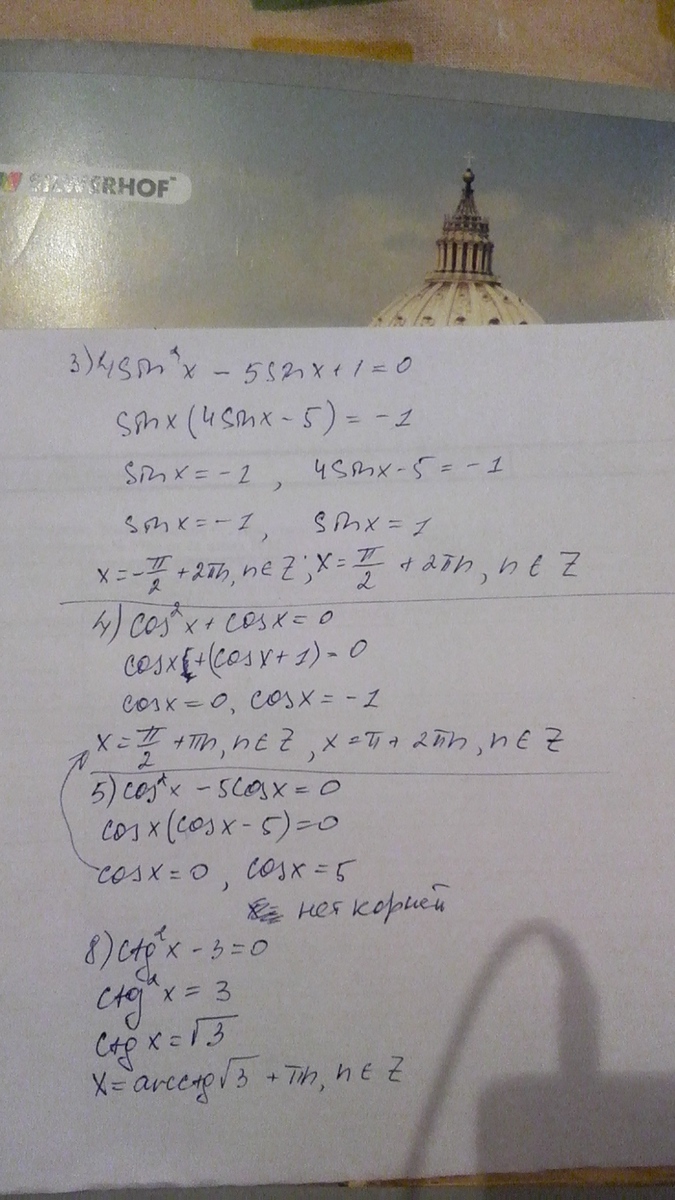 SILWERHOF™
3) 4sin²x - 5sinx + 1 = 0
sinx(4sinx - 5) = -1
sinx = -1, 4sinx - 5 = -1
sinx = -1, sinx = 1
x = -π/2 + 2πn, n ∈ Z; x = π/2 + 2πn, n ∈ Z
4) cos²x + cosx = 0
cosx + (cosx + 1) = 0
cosx = 0, cosx = -1
x = π/2 + πn, n ∈ Z, x = π + 2πn, n ∈ Z
5) cos²x - 5cosx = 0
cosx(cosx - 5) = 0
cosx = 0, cosx = 5
нет корней
8) ctg²x - 3 = 0
ctg²x = 3
ctg x = √3
x = arcctg√3 + πn, n ∈ Z